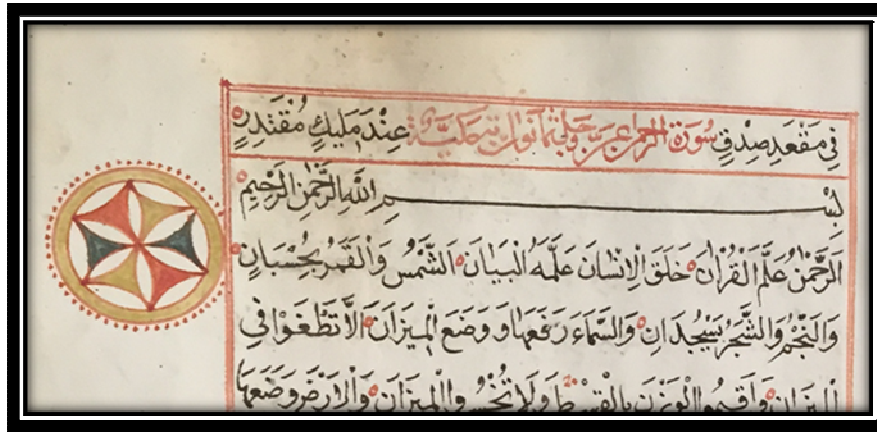 فِي مَقْعَدِ صِدْقٍ سُورَة الرحمن عِنْدَ مَلِيكٍ مُقْتَدِرٍ
بِسْمِ اللَّهِ الرَّحْمَنِ الرَّحِيمِ
اَلرَّحْمَنُ عَلَّمَ الْقُرْاٰنَ خَلَقَ الْاِنْسَانَ عَلَّمَهُ الْبَيَانَ اَلشَّمْسُ وَالْقَمَرُ بِحُسْبَانٍ
وَالنَّجْمُ وَالشَّجَرُ يَسْجُدَانِ وَالسَّمَاءَ رَفَعَهَا وَوَضَعَ الْمِيزَانَ اَلَّا تَطْغَوْا فِي
الْمِيزَانِ وَاَقِيمُوا الْوَزْنَ بِالْقِسْطِ وَلَا تُخْسِرُوا الْمِيزَانَ وَالْاَرْضَ وَضَعَهَا